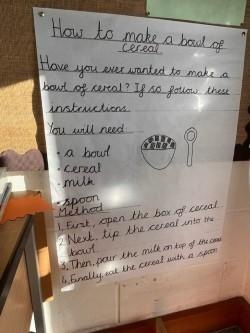 How to make a bowl of
cereal
Have you ever wanted to make a
bowl of cereal? If so follow these
instructions.
You will need:
• a bowl
• cereal
• milk
• spoon
Method
1. First, open the box of cereal
2. Next, tip the cereal into the
bowl
3. Then, pour the milk on top of the cereal
4. Finally, eat the cereal with a spoon